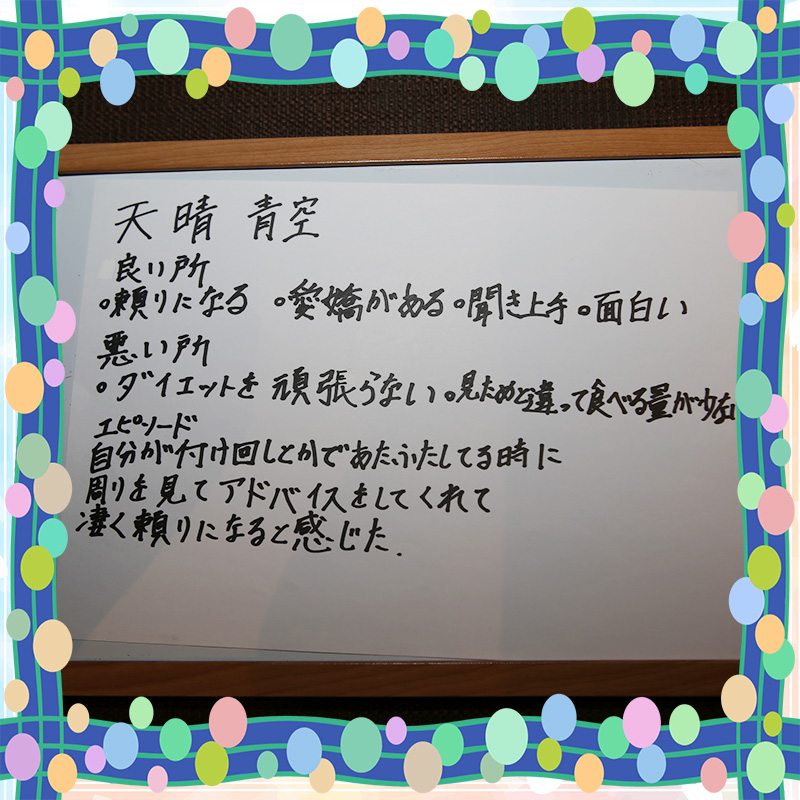 天晴 青空
良い所
。頼りになる 。愛嬌がある 。聞き上手 。面白い
悪い所
。ダイエットを頑張らない 。見ためと違って食べる量が少ない
エピソード
自分が付け回しとかであたふたしてる時に
周りを見てアドバイスをしてくれて
凄く頼りになると感じた.